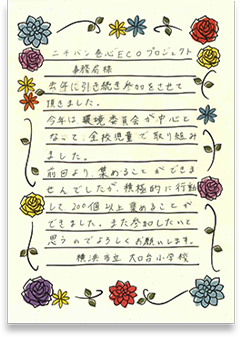 ニチバン巻心ECOプロジェクト
事務局様
去年に引き続き参加をさせて
頂きました。
今年は環境委員会が中心と
なって、全校児童で取り組み
ました。
前回より、集めることができま
せんでしたが、積極的に行動
して、200個以上集めることが
できました。また参加したいと
思うのでよろしくお願いします。
横浜市立 大口台小学校